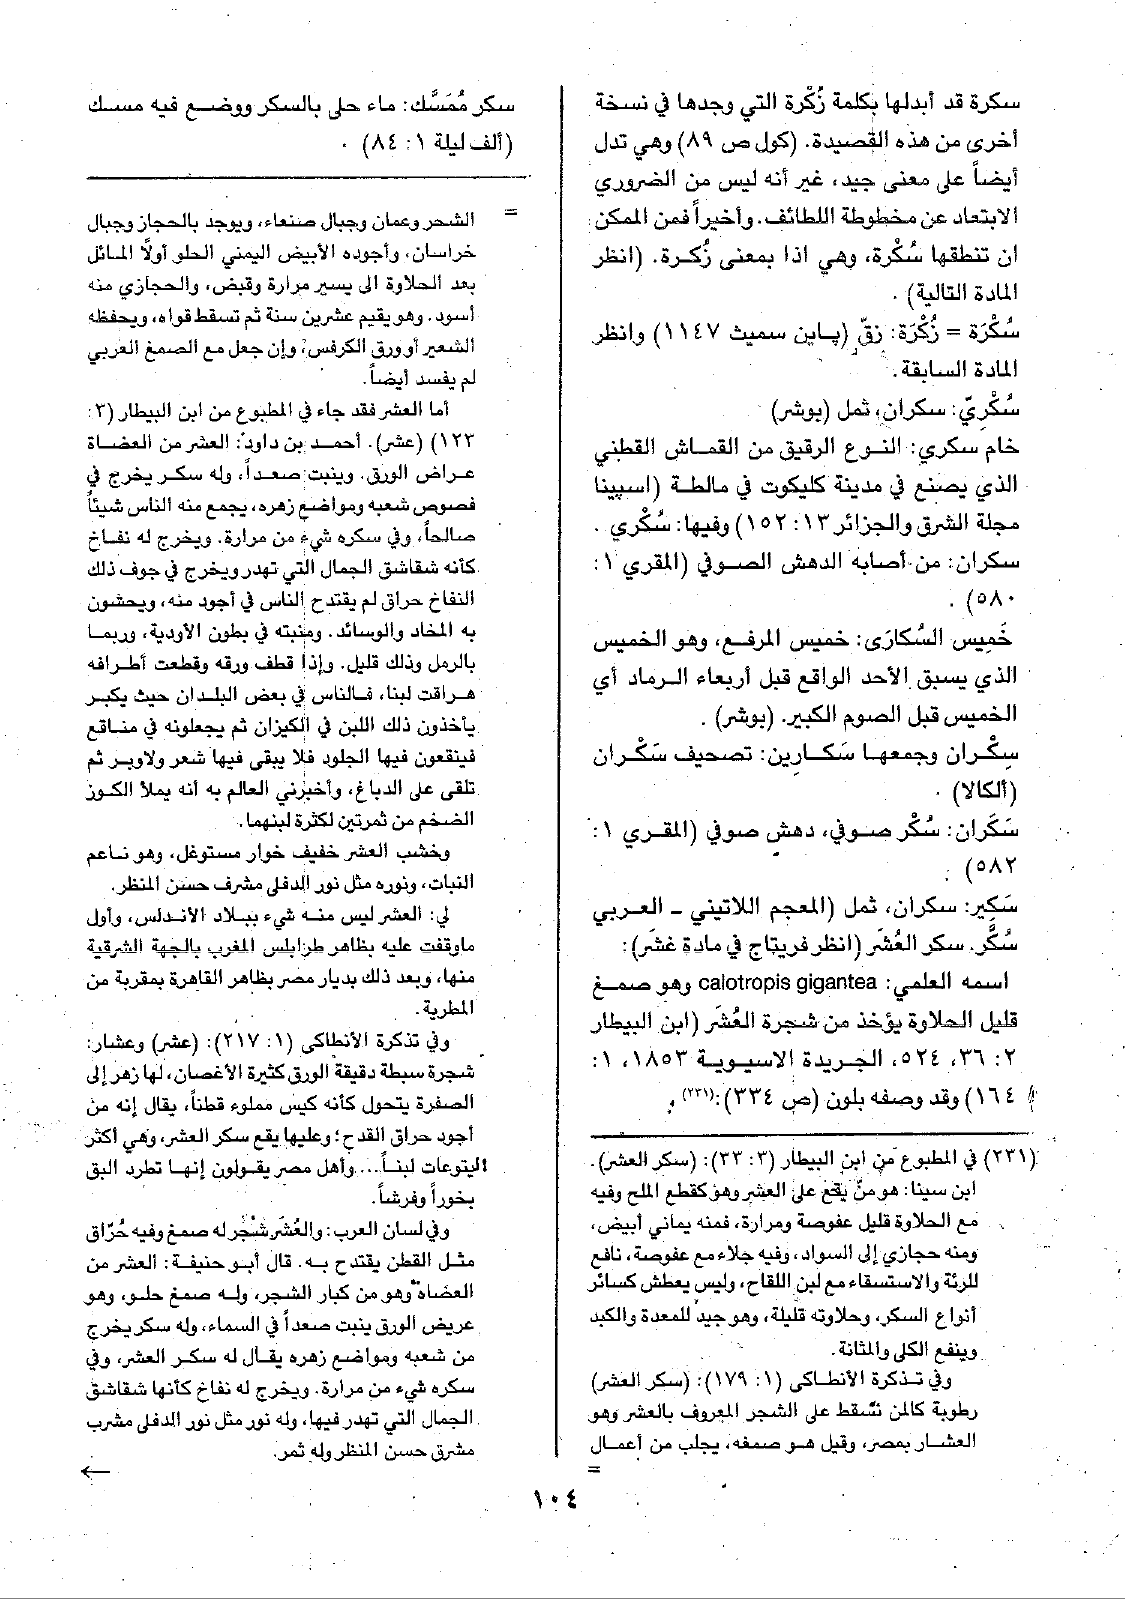 سكرة قد أبدلها بكلمة زُكْرة التي وجدها في نسخة
أخرى من هذه القصيدة. (كول ص ٨٩) وهي تدل
أيضاً على معنى جيد، غير أنه ليس من الضروري
الابتعاد عن مخطوطة اللطائف. وأخيراً فمن الممكن
ان تنطقها سُكْرة، وهي اذا بمعنى زُكرة. (انظر
المادة التالية) .
سُكْرَة = زُكْرَة: زِقّ (پاين سميث ١١٤٧) وانظر
المادة السابقة.
سُكْرِيّ: سكران، ثمل (بوشر)
خام سكري: النوع الرقيق من القماش القطني
الذي يصنع في مدينة كليكوت في مالطة (اسپينا
مجلة الشرق والجزائر ١٣: ١٥٢) وفيها: سُكْري .
سكران: من أصابه الدهش الصوفي (المقري ١:
٥٨٠) .
خَمِيس السُكارَى: خميس المرفع، وهو الخميس
الذي يسبق الأحد الواقع قبل أربعاء الرماد أي
الخميس قبل الصوم الكبير. (بوشر) .
سِكْران وجمعها سَكارين: تصحيف سَكْران
(ألكالا) .
سَكَران: سُكْر صوفي، دهش صوفي (المقري ١:
٥٨٢) .
سَكِير: سكران، ثمل (المعجم اللاتيني - العربي
سُكَّر. سكر العُشَر (انظر فريتاج في مادة عُشَر):
اسمه العلمي: calotropis gigantea وهو صمغ
قليل الحلاوة يؤخذ من شجرة العُشَر (ابن البيطار
٢: ٣٦، ٥٢٤، الجريدة الاسيوية ١٨٥٣، ١:
١٦٤) وقد وصفه بلون (ص ٣٣٤):(٢٣١) .
(٢٣١) في المطبوع من ابن البيطار (٣: ٢٣): (سكر العشر).
ابن سينا: هو منّ يقع على العشر وهو كقطع الملح وفيه
مع الحلاوة قليل عفوصة ومرارة، فمنه يماني أبيض،
ومنه حجازي إلى السواد، وفيه جلاء مع عفوصة، نافع
للرئة والاستسقاء مع لبن اللقاح، وليس يعطش كسائر
أنواع السكر، وحلاوته قليلة، وهو جيد للمعدة والكبد
وينفع الكلى والمثانة.
وفي تذكرة الأنطاكي (١: ١٧٩): (سكر العشر)
رطوبة كالمن تسقط على الشجر المعروف بالعشر وهو
العشار بمصر، وقيل هو صمغه، يجلب من أعمال
=
سكر مُمَسَّك: ماء حلي بالسكر ووضع فيه مسك
(ألف ليلة ١: ٨٤) .
=
الشحر وعمان وجبال صنعاء، ويوجد بالحجاز وجبال
خراسان، وأجوده الأبيض اليمني الحلو أولاً المائل
بعد الحلاوة الى يسير مرارة وقبض، والحجازي منه
أسود. وهو يقيم عشرين سنة ثم تسقط قواه، ويحفظه
الشعير أو ورق الكرفس، وإن جعل مع الصمغ العربي
لم يفسد أيضاً.
أما العشر فقد جاء في المطبوع من ابن البيطار (٣:
١٢٣) (عشر). أحمد بن داود: العشر من العضاة
عراض الورق. وينبت صعداً، وله سكر يخرج في
فصوص شعبه ومواضع زهره، يجمع منه الناس شيئاً
صالحاً، وفي سكره شيء من مرارة. ويخرج له نفاخ
كأنه شقاشق الجمال التي تهدر ويخرج في جوف ذلك
النفاخ حراق لم يقتدح الناس في أجود منه، ويحشون
به المخاد والوسائد. ومنبته في بطون الأودية، وربما
بالرمل وذلك قليل. وإذا قطف ورقه وقطعت أطرافه
هراقت لبنا، فالناس في بعض البلدان حيث يكبر
يأخذون ذلك اللبن في الكيزان ثم يجعلونه في مناقع
فينقعون فيها الجلود فلا يبقى فيها شعر ولا وبر ثم
تلقى على الدباغ، وأخبرني العالم به أنه يملأ الكوز
الضخم من ثمرتين لكثرة لبنهما.
وخشب العشر خفيف خوار مستوغل، وهو ناعم
النبات، ونوره مثل نور الدفلى مشرف حسن المنظر.
لي: العشر ليس منه شيء ببلاد الاندلس، وأول
ماوقفت عليه بظاهر طرابلس المغرب بالجهة الشرقية
منها، وبعد ذلك بديار مصر بظاهر القاهرة بمقربة من
المطرية.
وفي تذكرة الأنطاكي (١: ٢١٧): (عشر) وعشار:
شجرة سبطة دقيقة الورق كثيرة الأغصان، لها زهر إلى
الصفرة يتحول كأنه كيس مملوء قطناً، يقال إنه من
أجود حراق القدح؛ وعليها يقع سكر العشر، وهي أكثر
اليتوعات لبناً.... وأهل مصر يقولون إنها تطرد البق
بخوراً وفرشاً.
وفي لسان العرب: والعُشَر شجر له صمغ وفيه حُرّاق
مثل القطن يقتدح به. قال أبو حنيفة: العشر من
العضاه وهو من كبار الشجر، وله صمغ حلو، وهو
عريض الورق ينبت صعداً في السماء، وله سكر يخرج
من شعبه ومواضع زهره يقال له سكر العشر، وفي
سكره شيء من مرارة. ويخرج له نفاخ كأنها شقاشق
الجمال التي تهدر فيها، وله نور مثل نور الدفلى مشرب
مشرق حسن المنظر وله ثمر.
←
١٠٤